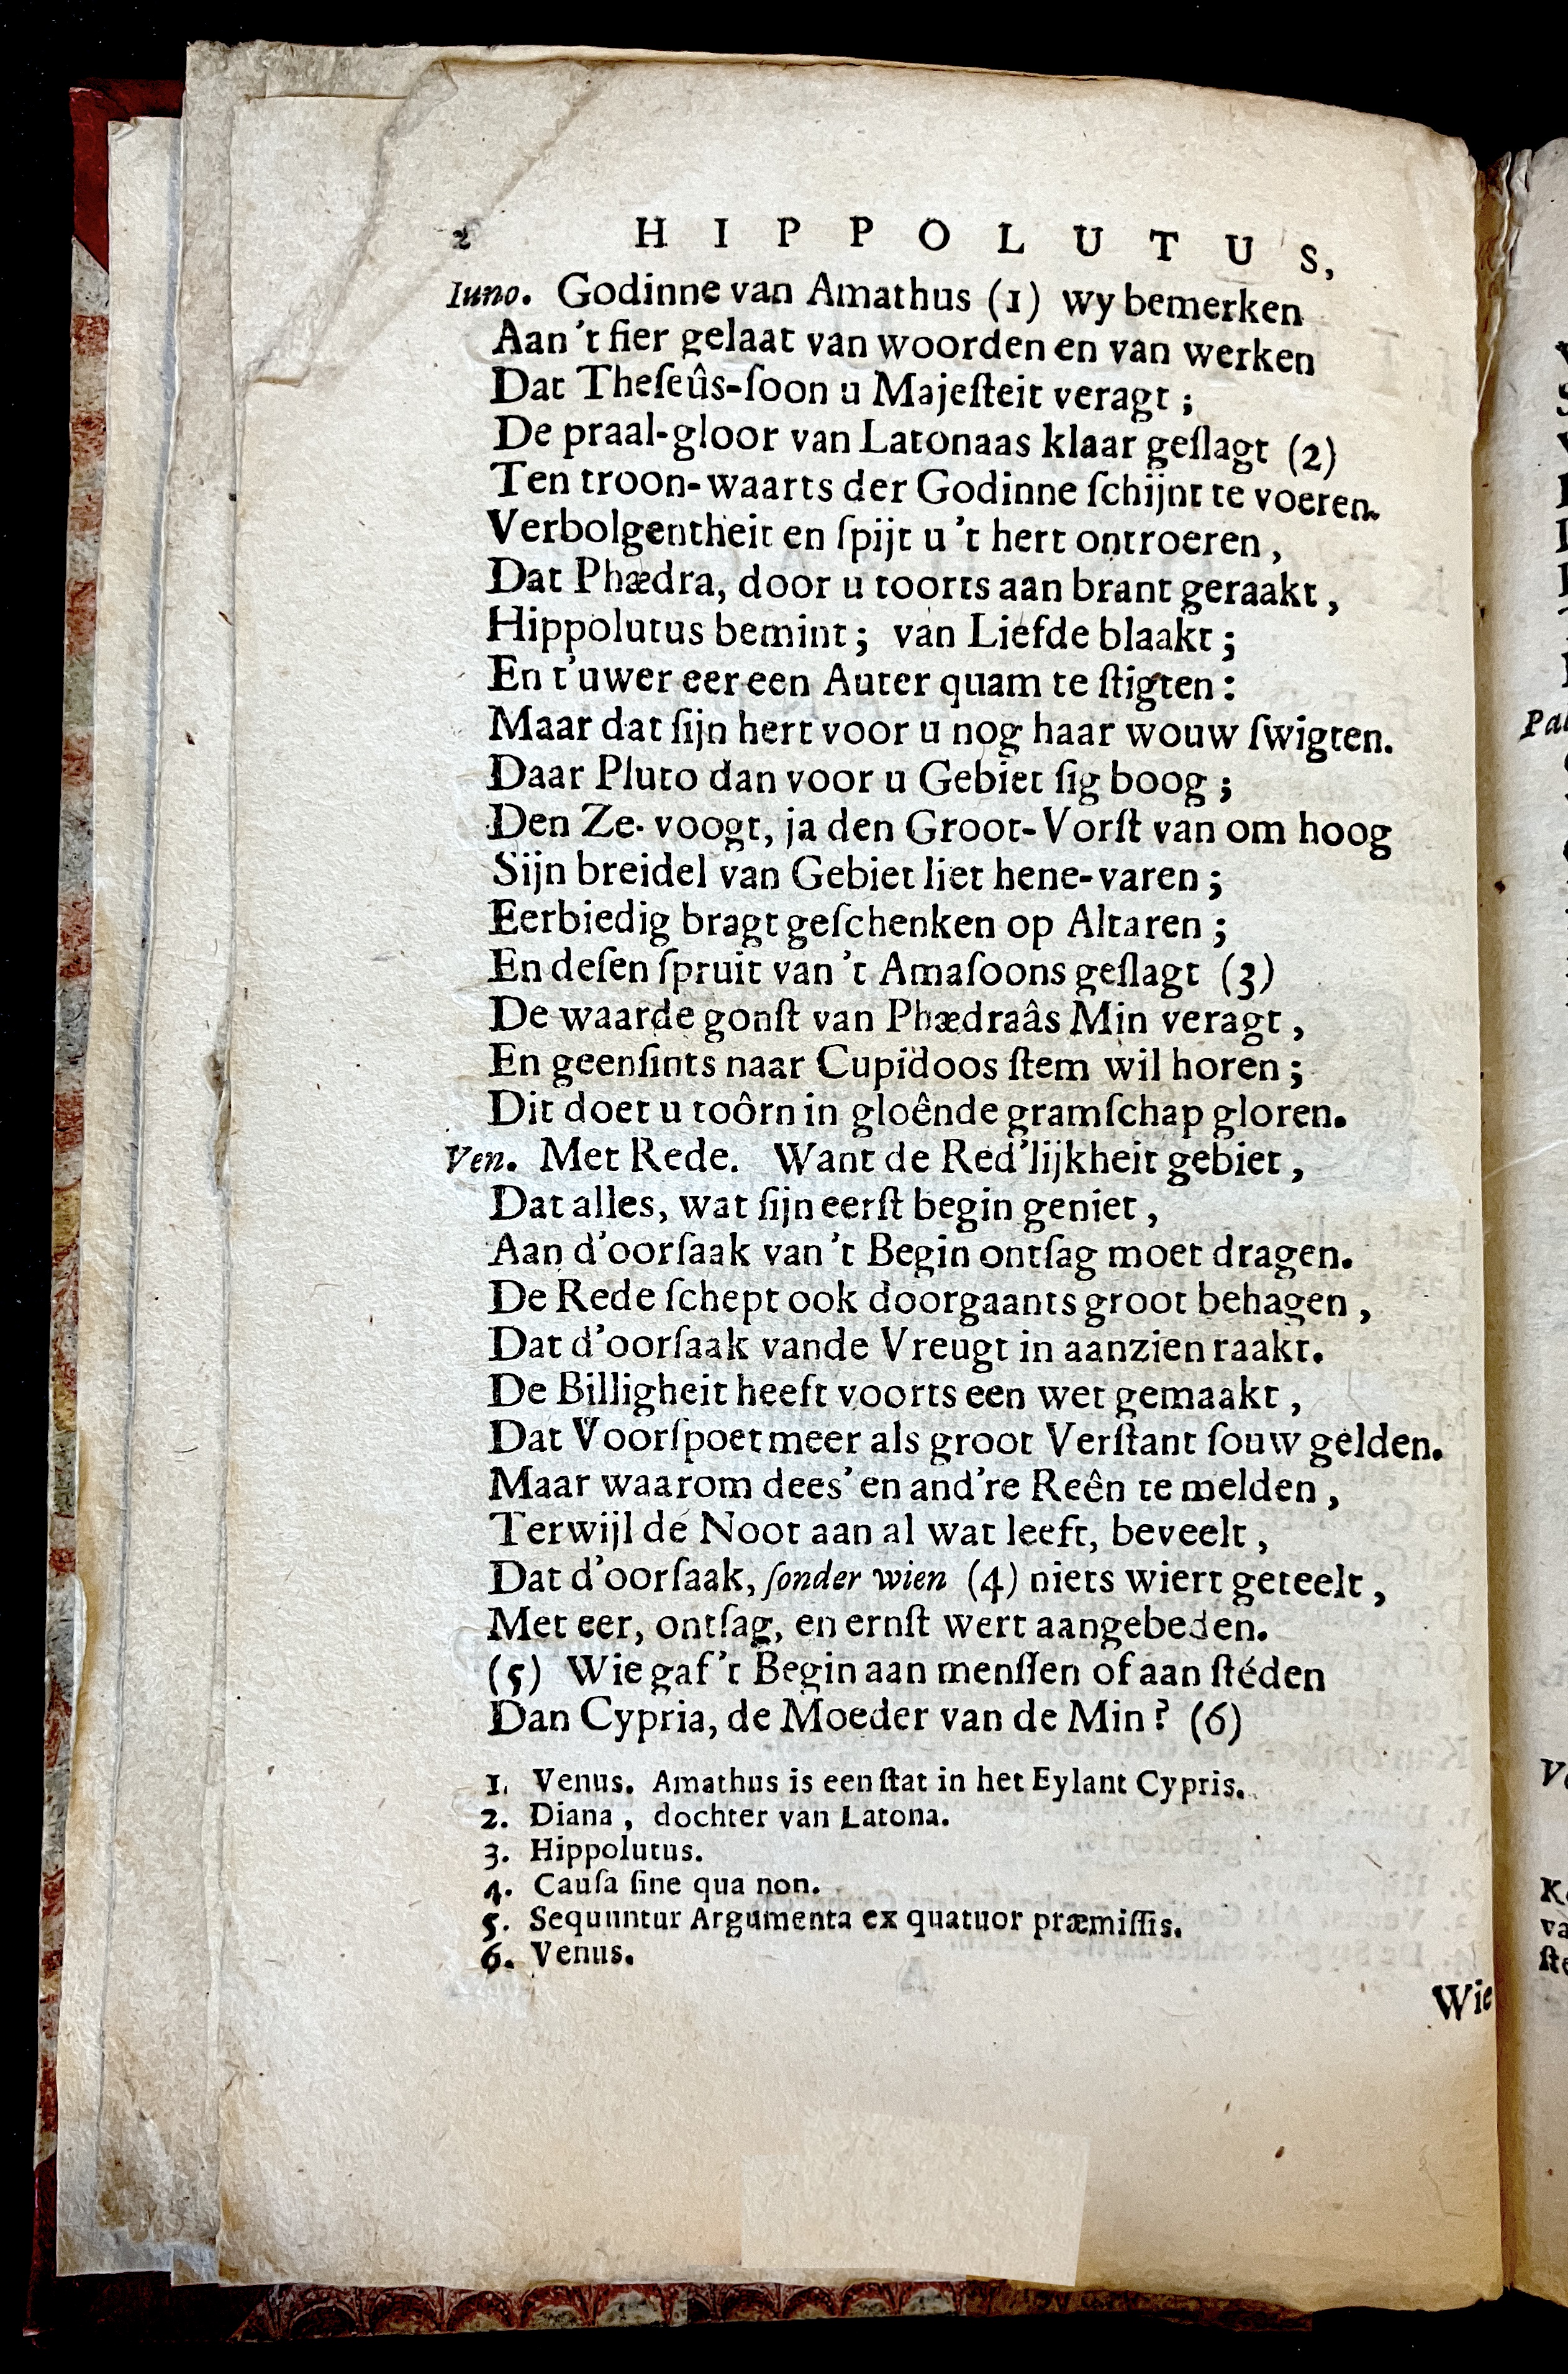 2 HIPPOLUTUS,
Iuno. Godinne van Amathus (1) wy bemerken
Aan 't fier gelaat van woorden en van werken
Dat Theſeûs-ſoon u Majeſteit veragt;
De praal-gloor van Latonaas klaar geſlagt (2)
Ten troon-waarts der Godinne ſchijnt te voeren.
Verbolgentheit en ſpijt u 't hert ontroeren,
Dat Phædra, door u toorts aan brant geraakt,
Hippolutus bemint; van Liefde blaakt;
En t'uwer eer een Auter quam te ſtigten:
Maar dat ſijn hert voor u nog haar wouw ſwigten.
Daar Pluto dan voor u Gebiet ſig boog;
Den Ze-voogt, ja den Groot-Vorſt van om hoog
Sijn breidel van Gebiet liet hene-varen;
Eerbiedig bragt geſchenken op Altaren;
En deſen ſpruit van 't Amaſoons geſlagt (3)
De waarde gonſt van Phædraâs Min veragt,
En geenſints naar Cupidoos ſtem wil horen;
Dit doet u toôrn in gloênde gramſchap gloren.
Ven. Met Rede. Want de Red'lijkheit gebiet,
Dat alles, wat ſijn eerſt begin geniet,
Aan d'oorſaak van 't Begin ontſag moet dragen.
De Rede ſchept ook doorgaants groot behagen,
Dat d'oorſaak vande Vreugt in aanzien raakt.
De Billigheit heeft voorts een wet gemaakt,
Dat Voorſpoet meer als groot Verſtant ſouw gelden.
Maar waarom dees' en and're Reên te melden,
Terwijl de Noot aan al wat leeft, beveelt,
Dat d'oorſaak, ſonder wien (4) niets wiert geteelt,
Met eer, ontſag, en ernſt wert aangebeden.
(5) Wie gaf 't Begin aan menſſen of aan ſtéden
Dan Cypria, de Moeder van de Min? (6)
1. Venus. Amathus is een ſtat in het Eylant Cypris.
2. Diana, dochter van Latona.
3. Hippolutus.
4. Cauſa ſine qua non.
5. Sequuntur Argumenta ex quatuor præmiſſis.
6. Venus.
Wie